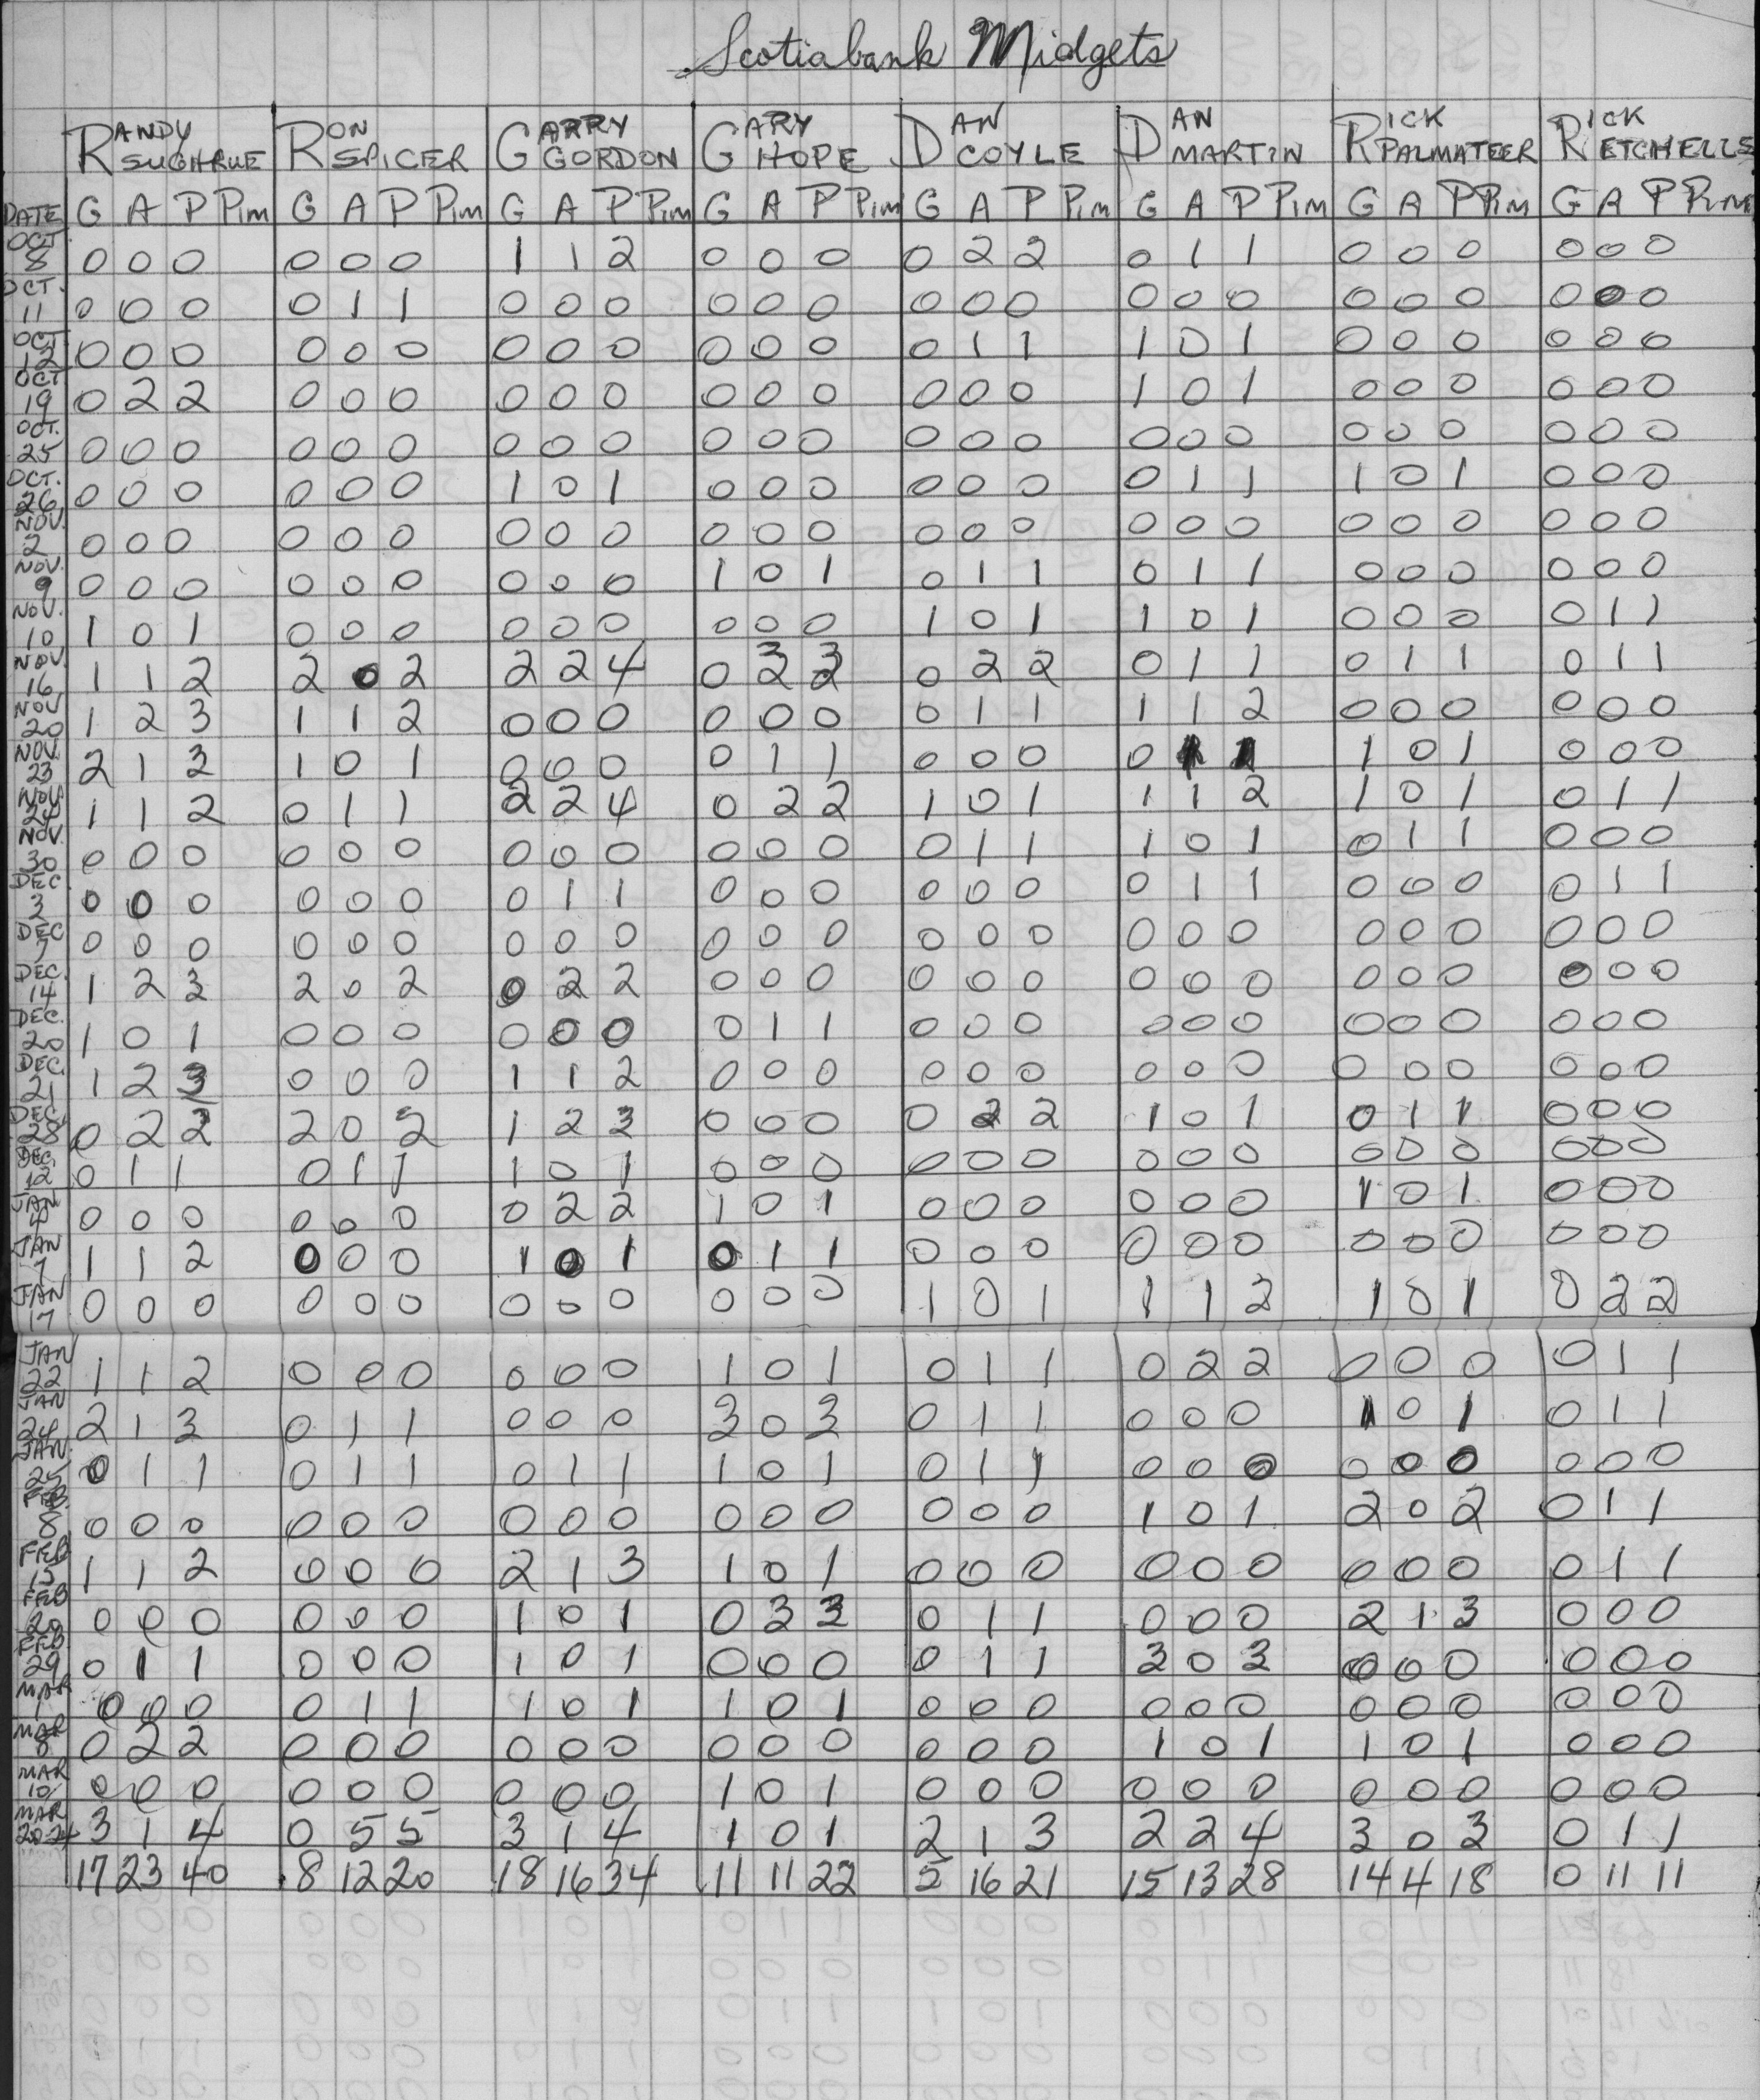 Scotiabank Midgets
RANDY SUGHRUE RON SPICER GARRY GORDON GARY HOPE DAN COYLE DAN MARTIN RICK PALMATEER RICK ETCHELLS
DATE G A P Pim G A P Pim G A P Pim G A P Pim G A P Pim G A P Pim G A P Pim G A P Pim
OCT 8 0 0 0 0 0 0 1 1 2 0 0 0 0 2 2 0 1 1 0 0 0 0 0 0
OCT. 11 0 0 0 0 1 1 0 0 0 0 0 0 0 0 0 0 0 0 0 0 0 0 0 0
OCT 12 0 0 0 0 0 0 0 0 0 0 0 0 0 1 1 1 0 1 0 0 0 0 0 0
OCT 19 0 2 2 0 0 0 0 0 0 0 0 0 0 0 0 1 0 1 0 0 0 0 0 0
OCT. 25 0 0 0 0 0 0 0 0 0 0 0 0 0 0 0 0 0 0 0 0 0 0 0 0
OCT. 26 0 0 0 0 0 0 1 0 1 0 0 0 0 0 0 0 1 1 1 0 1 0 0 0
NOV. 2 0 0 0 0 0 0 0 0 0 0 0 0 0 0 0 0 0 0 0 0 0 0 0 0
NOV. 9 0 0 0 0 0 0 0 0 0 1 0 1 0 1 1 0 1 1 0 0 0 0 0 0
NOV. 10 1 0 1 0 0 0 0 0 0 0 0 0 1 0 1 1 0 1 0 0 0 0 1 1
NOV. 16 1 1 2 2 0 2 2 2 4 0 3 3 0 2 2 0 1 1 0 1 1 0 1 1
NOV 20 1 2 3 1 1 2 0 0 0 0 0 0 0 1 1 1 1 2 0 0 0 0 0 0
NOV. 23 2 1 3 1 0 1 0 0 0 0 1 1 0 0 0 0 1 0 1 0 0 0
NOV 24 1 1 2 0 1 1 2 2 4 0 2 2 1 0 1 1 1 2 1 0 1 0 1 1
NOV. 30 0 0 0 0 0 0 0 0 0 0 0 0 0 1 1 1 0 1 0 1 1 0 0 0
DEC 3 0 0 0 0 0 0 0 1 1 0 0 0 0 0 0 0 1 1 0 0 0 0 1 1
DEC 7 0 0 0 0 0 0 0 0 0 0 0 0 0 0 0 0 0 0 0 0 0 0 0 0
DEC. 14 1 2 3 2 0 2 0 2 2 0 0 0 0 0 0 0 0 0 0 0 0 0 0 0
DEC. 20 1 0 1 0 0 0 0 0 0 0 1 1 0 0 0 0 0 0 0 0 0 0 0 0
DEC. 21 1 2 3 0 0 0 1 1 2 0 0 0 0 0 0 0 0 0 0 0 0 0 0 0
DEC. 28 0 2 2 2 0 2 1 2 3 0 0 0 0 2 2 1 0 1 0 1 1 0 0 0
DEC. 12 0 1 1 0 1 1 1 0 1 0 0 0 0 0 0 0 0 0 0 0 0 0 0 0
JAN 4 0 0 0 0 0 0 0 2 2 1 0 1 0 0 0 0 0 0 1 0 1 0 0 0
JAN 7 1 1 2 0 0 0 1 0 1 0 1 1 0 0 0 0 0 0 0 0 0 0 0 0
JAN 17 0 0 0 0 0 0 0 0 0 0 0 0 1 0 1 1 1 2 1 0 1 0 2 2
JAN 22 1 1 2 0 0 0 0 0 0 1 0 1 0 1 1 0 2 2 0 0 0 0 1 1
JAN 24 2 1 3 0 1 1 0 0 0 3 0 3 0 1 1 0 0 0 1 0 1 0 1 1
JAN. 25 0 1 1 0 1 1 0 1 1 1 0 1 0 1 1 0 0 0 0 0 0 0 0 0
FEB. 8 0 0 0 0 0 0 0 0 0 0 0 0 0 0 0 1 0 1 2 0 2 0 1 1
FEB 15 1 1 2 0 0 0 2 1 3 1 0 1 0 0 0 0 0 0 0 0 0 0 1 1
FEB 20 0 0 0 0 0 0 1 0 1 0 3 3 0 1 1 0 0 0 2 1 3 0 0 0
FEB. 29 0 1 1 0 0 0 1 0 1 0 0 0 0 1 1 3 0 3 0 0 0 0 0 0
MAR 1 0 0 0 0 1 1 1 0 1 1 0 1 0 0 0 0 0 0 0 0 0 0 0 0
MAR 8 0 2 2 0 0 0 0 0 0 0 0 0 0 0 0 1 0 1 1 0 1 0 0 0
MAR 10 0 0 0 0 0 0 0 0 0 1 0 1 0 0 0 0 0 0 0 0 0 0 0 0
MAR 20-24 3 1 4 0 5 5 3 1 4 1 0 1 2 1 3 2 2 4 3 0 3 0 1 1
17 23 40 8 12 20 18 16 34 11 11 22 5 16 21 15 13 28 14 4 18 0 11 11